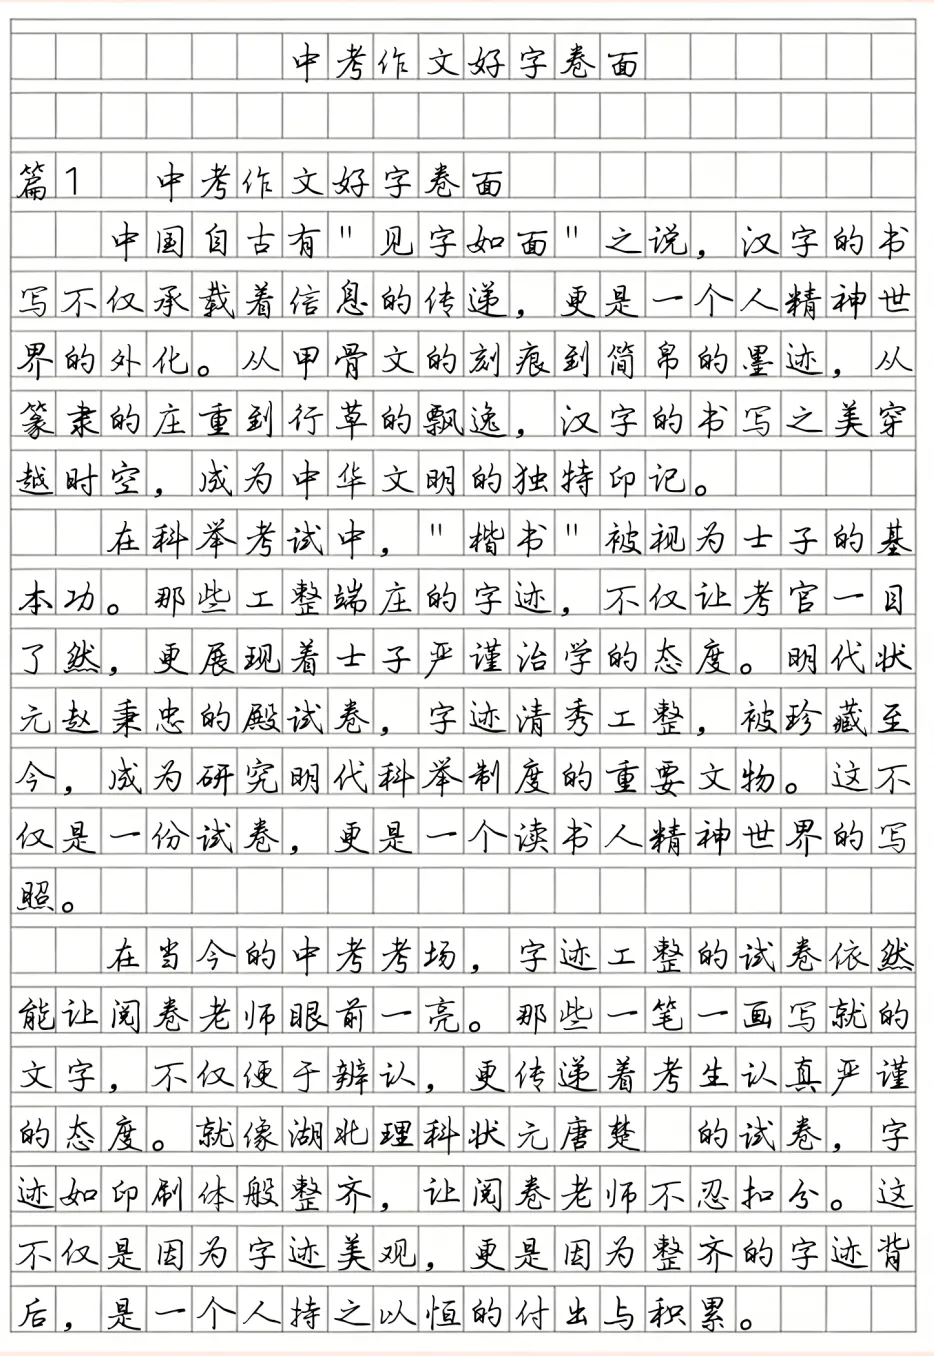 中考作文好字卷面
篇1 中考作文好字卷面
中国自古有"见字如面"之说，汉字的书
写不仅承载着信息的传递，更是一个人精神世
界的外化。从甲骨文的刻痕到简帛的墨迹，从
篆隶的庄重到行草的飘逸，汉字的书写之美穿
越时空，成为中华文明的独特印记。
在科举考试中，"楷书"被视为士子的基
本功。那些工整端庄的字迹，不仅让考官一目
了然，更展现着士子严谨治学的态度。明代状
元赵秉忠的殿试卷，字迹清秀工整，被珍藏至
今，成为研究明代科举制度的重要文物。这不
仅是一份试卷，更是一个读书人精神世界的写
照。
在当今的中考考场，字迹工整的试卷依然
能让阅卷老师眼前一亮。那些一笔一画写就的
文字，不仅便于辨认，更传递着考生认真严谨
的态度。就像湖北理科状元唐楚 的试卷，字
迹如印刷体般整齐，让阅卷老师不忍扣分。这
不仅是因为字迹美观，更是因为整齐的字迹背
后，是一个人持之以恒的付出与积累。